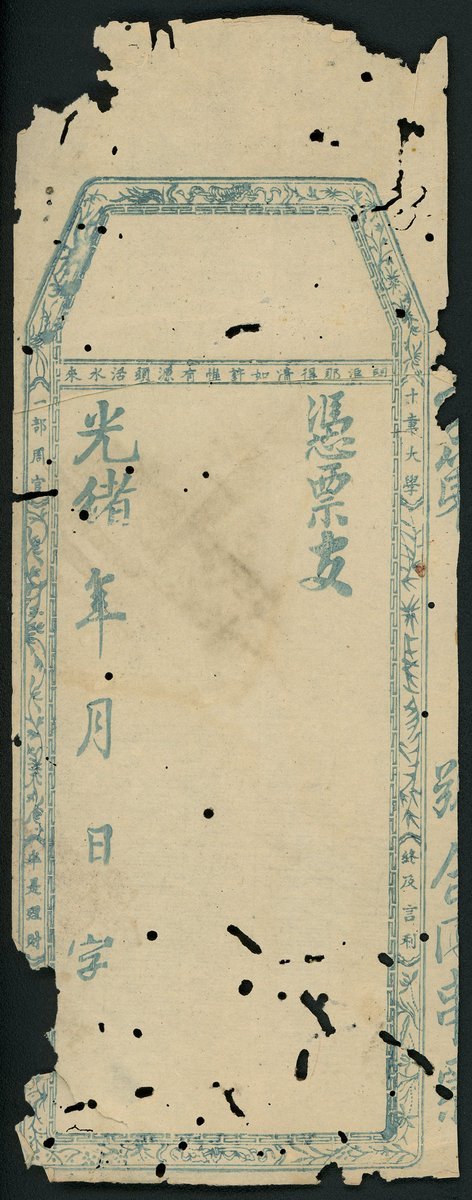 問渠那得清如許惟有源頭活水來
十章大學
終及言利
憑票支
光緒 年 月 日 字
一部周官
半是理財